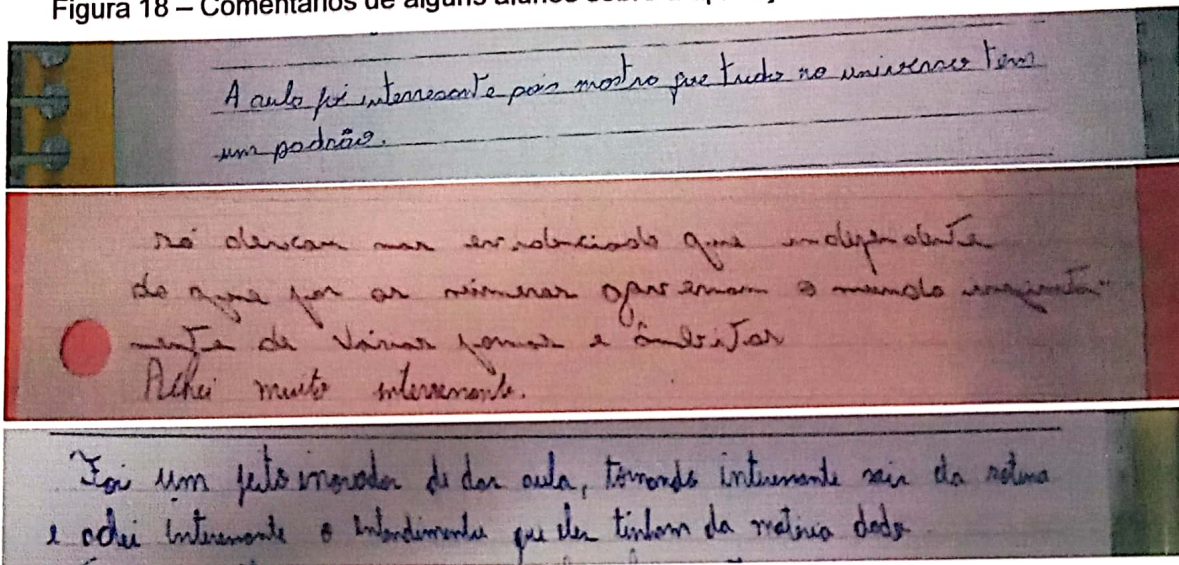 Figura 18 – Comentários de alguns alunos sobre a
A aula foi interresante pois mostro que tudo no universo tem
um padrão.
só deixam mas evidenciado que independente
do que for os números governam o mundo
mente de várias formas e âmbitos
Achei muito interresante.
Foi um jeito inovador de dar aula, tornando interessante sair da rotina
e achei interessante o entendimento que eles tinham da matéria dada